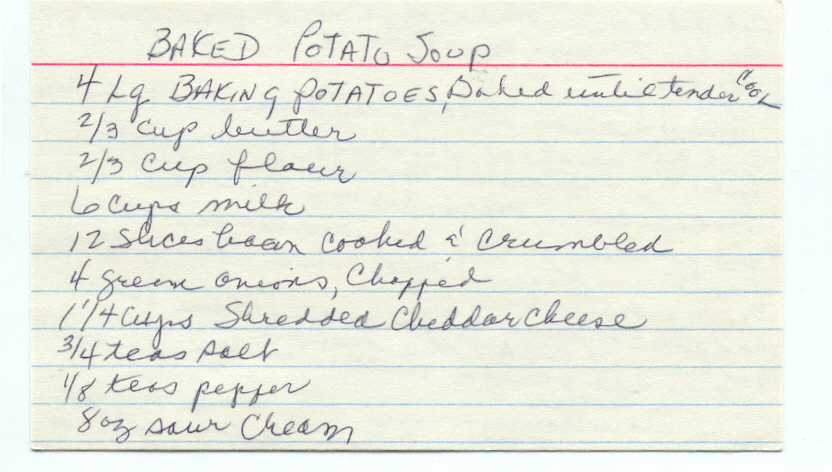 BAKED POTATO SOUP
4 Lg BAKING POTATOES, Baked until tender COOL
2/3 cup butter
2/3 cup flour
6 cups milk
12 slices bacon cooked & crumbled
4 green onions, chopped
1 1/4 cups Shredded Cheddar cheese
3/4 teas salt
1/8 teas pepper
8oz sour cream